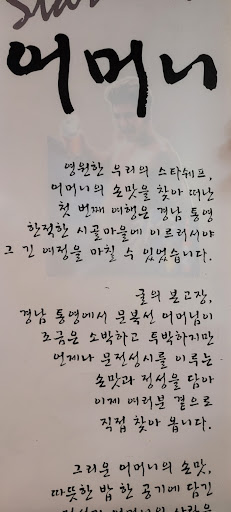 Star
어머니
영원한 우리의 스타쉐프,
어머니의 손맛을 찾아 떠난
첫 번째 여행은 경남 통영
한적한 시골마을에 이르러서야
그 긴 여정을 마칠 수 있었습니다.
굴의 본고장,
경남 통영에서 문복선 어머님이
조금은 소박하고 투박하지만
언제나 문전성시를 이루는
손맛과 정성을 담아
이제 여러분 곁으로
직접 찾아 옵니다.
그리운 어머니의 손맛,
따뜻한 밥 한 공기에 담긴
어머니의 사랑을